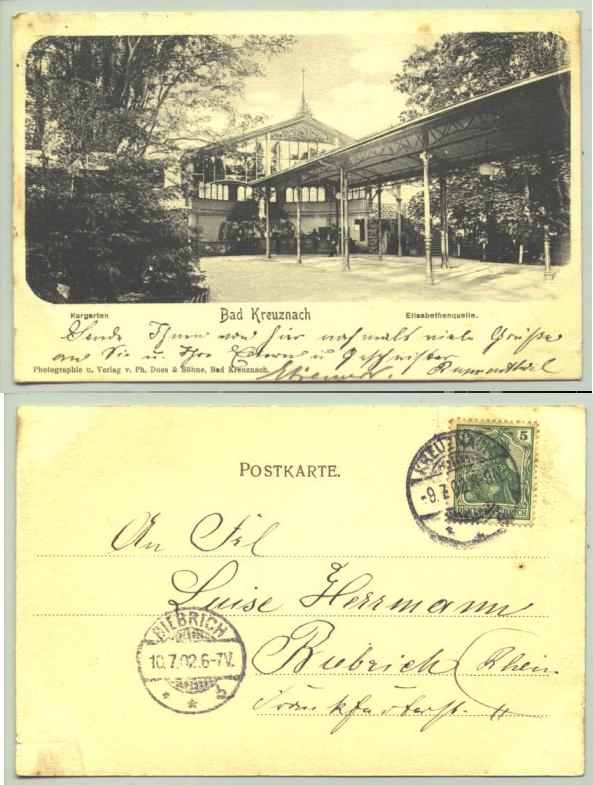 Kurgarten Bad Kreuznach Elisabethenquelle.
Sende Ihnen von hier nochmals viele Grüße
an Sie u. Ihre Eltern u. Geschwister
Photographie u. Verlag v. Ph. Dues & Söhne, Bad Kreuznach.
POSTKARTE.
KREUZNACH
-9.7.02
5
An Frl
Luise Herrmann
BIEBRICH
10.7.02.6-7V.
Biebrich (Rhein
Frankfurterstr.